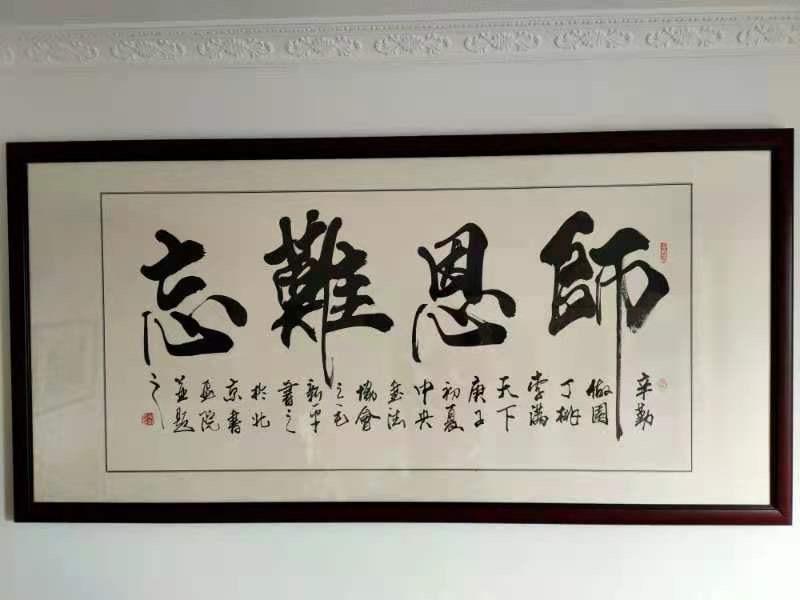 師恩難忘
辛勤
做園
丁桃
李满
天下
庚子
初夏
中央
書法
協會
新平
書之
於北
京書
画院
並題
之